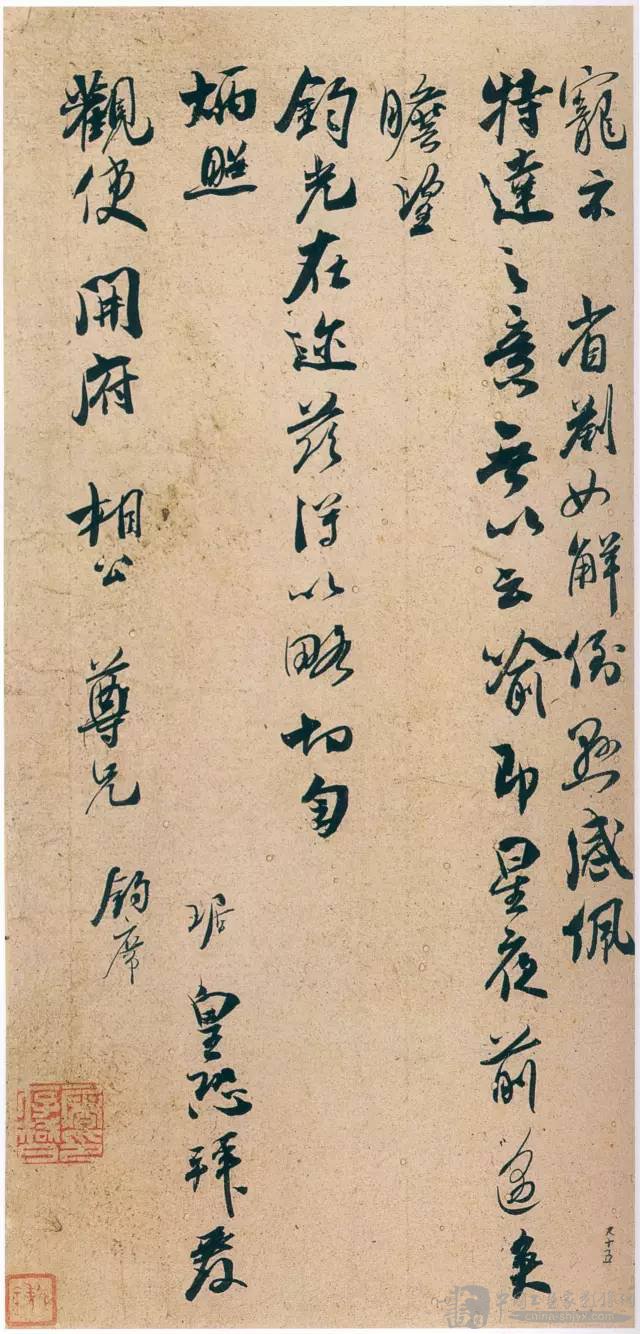 寵示 省劄如解倒懸感佩
特達之意無以云喻即星夜前邁矣
瞻望
鈞光在邇茲得以略切匄
炳照
琚 皇恐拜覆
觀使 開府 相公 尊兄 鈞席
china-shjyx.com